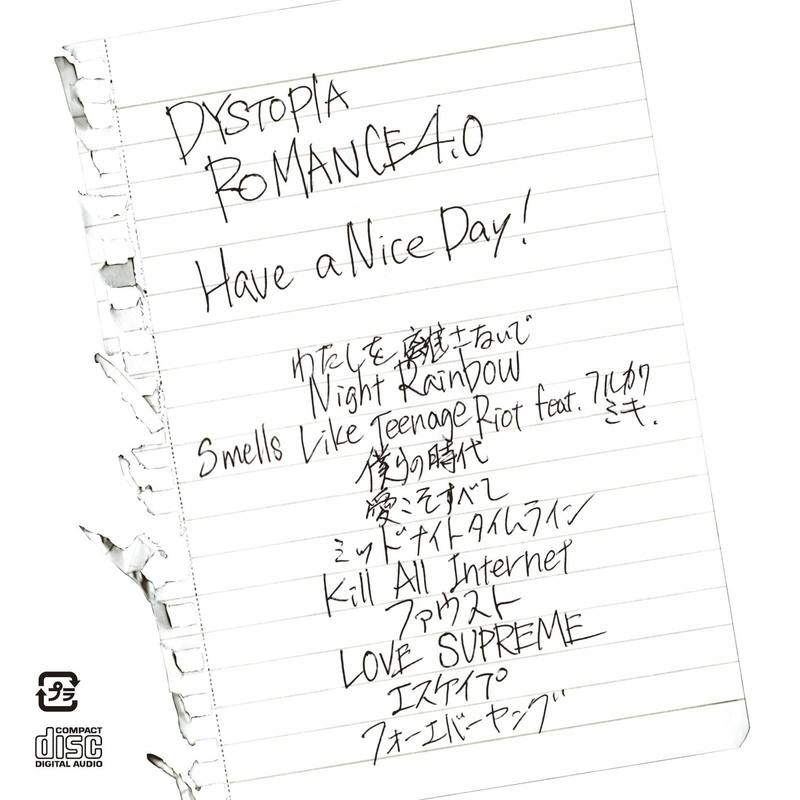 DYSTOPIA
ROMANCE4.0
Have a Nice Day!
わたしを離さないで
Night Rainbow
Smells Like Teenage Riot feat. フルカワ
ミキ.
僕らの時代
愛こそすべて
ミッドナイトタイムライン
Kill All Internet
ファウスト
LOVE SUPREME
エスケイプ
フォーエバーヤング
プラ
COMPACT
disc
DIGITAL AUDIO